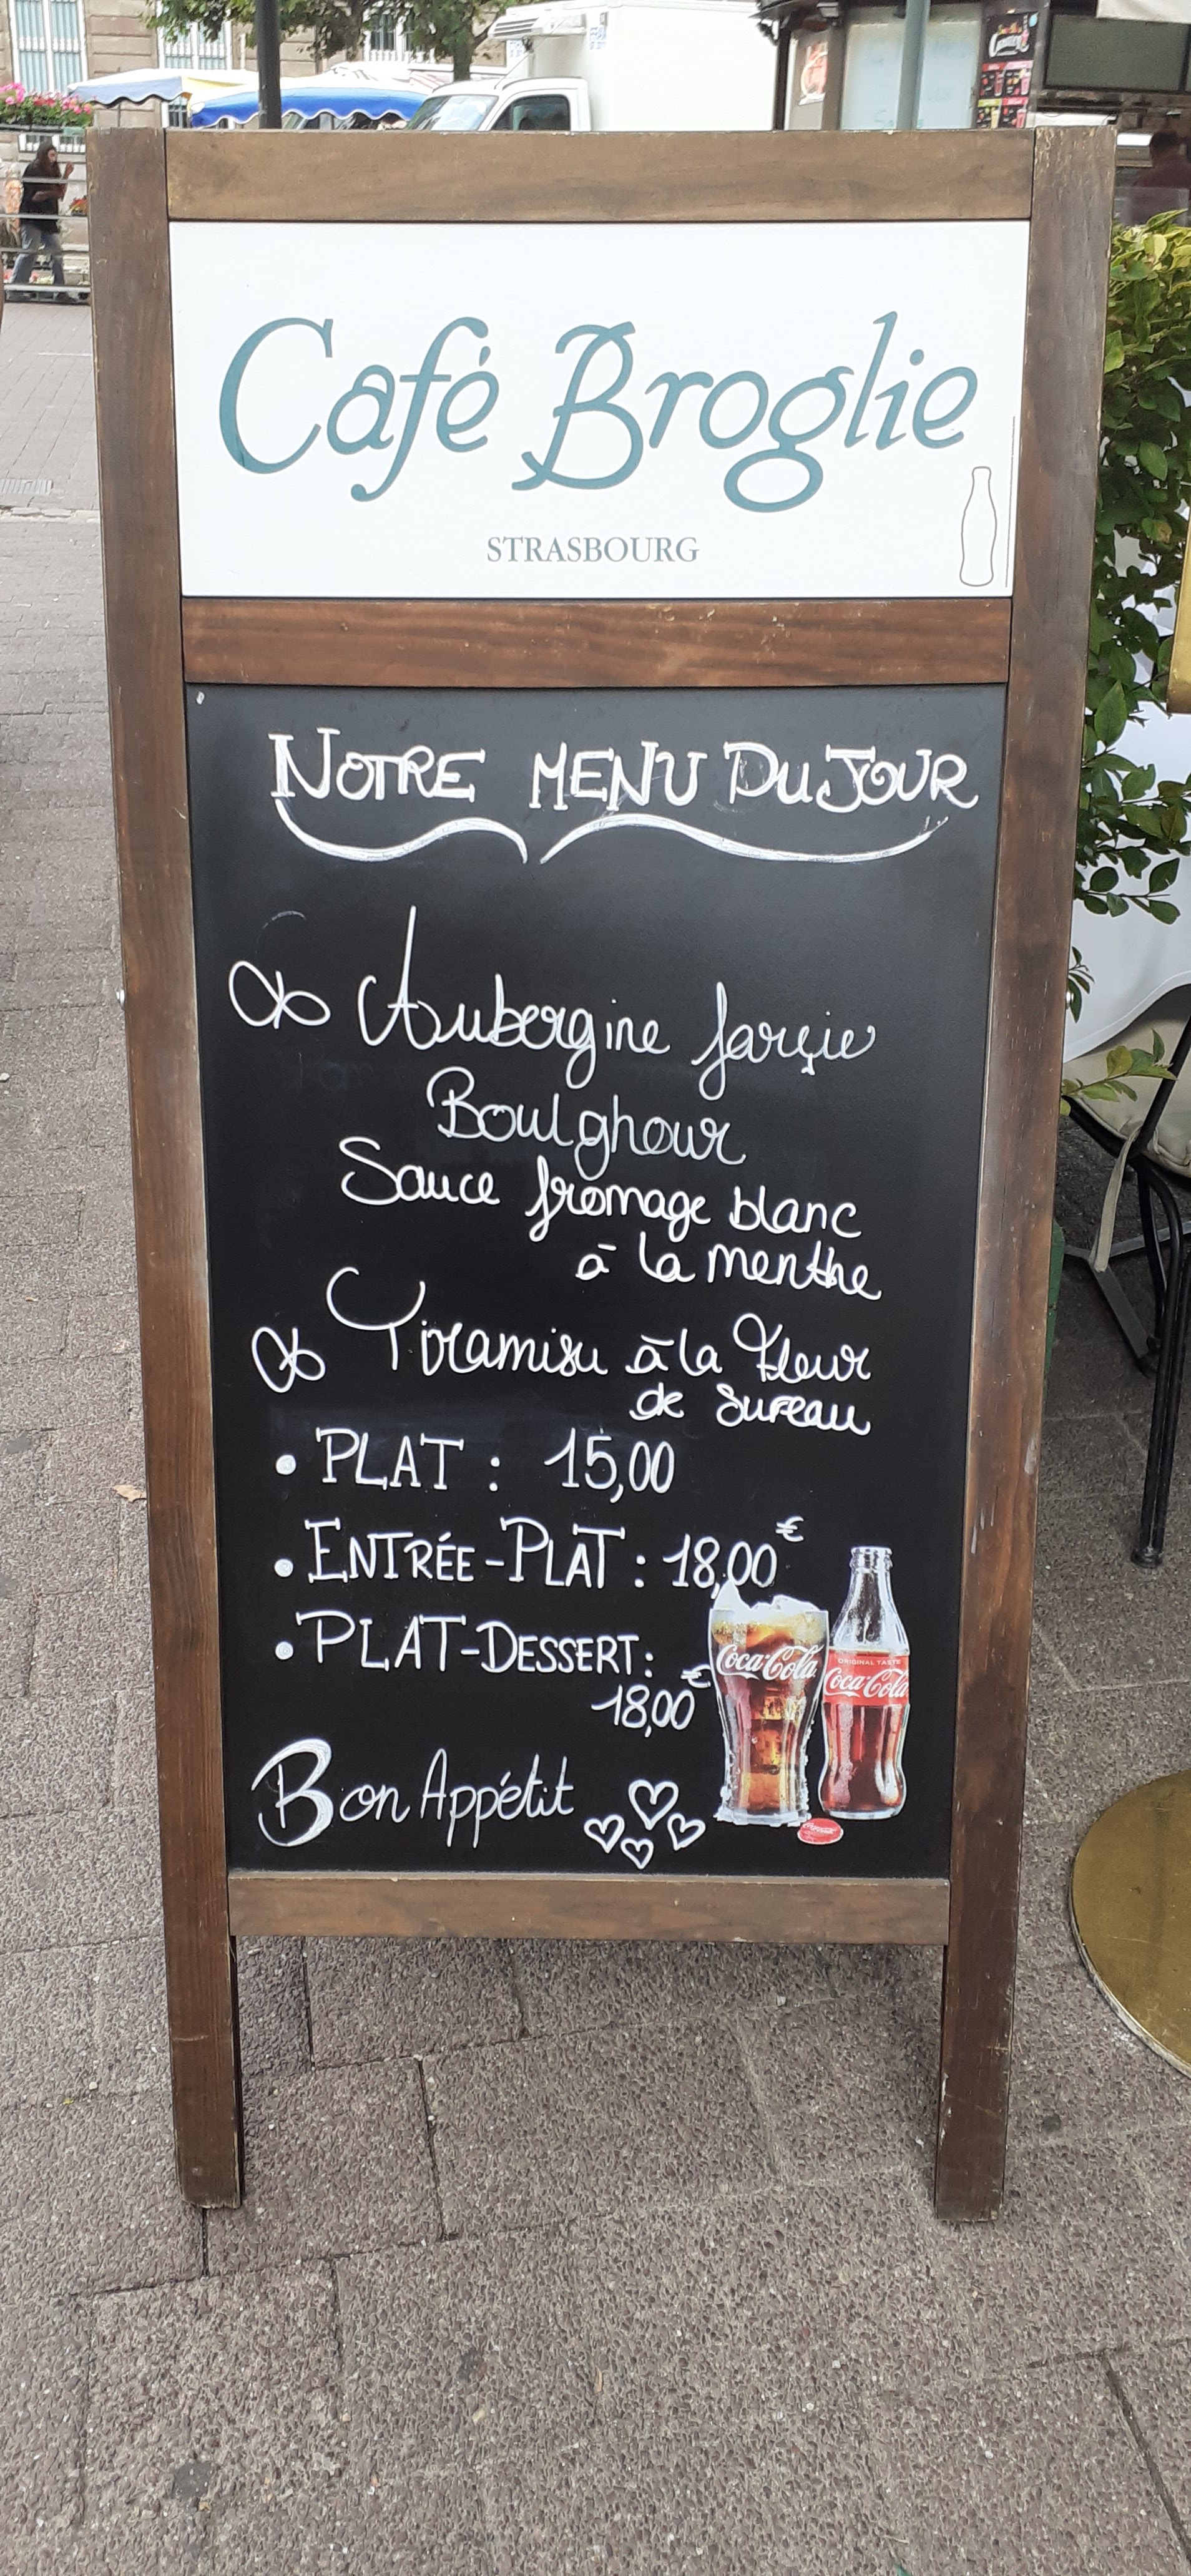 Café Broglie
STRASBOURG
NOTRE MENU DU JOUR
Aubergine farçie
Boulghour
Sauce fromage blanc
à la menthe
Tiramisu à la Fleur
de Sureau
• PLAT : 15,00
• ENTRÉE-PLAT : 18,00€
• PLAT-DESSERT :
18,00€
Coca-Cola
ORIGINAL TASTE
Coca-Cola
Bon Appétit